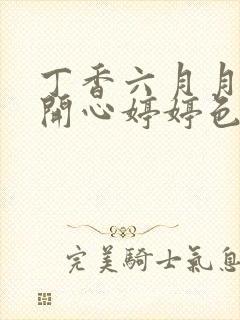 丁香六月月
開心婷婷色
完美騎士氣息